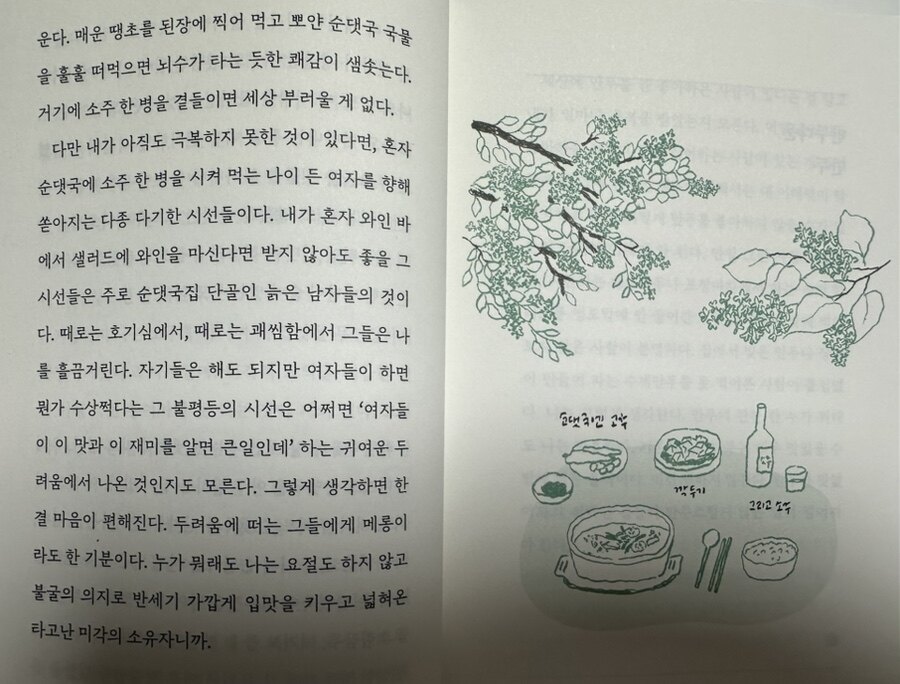 운다. 매운 땡초를 된장에 찍어 먹고 뽀얀 순댓국 국물
을 훌훌 떠먹으면 뇌수가 타는 듯한 쾌감이 샘솟는다.
거기에 소주 한 병을 곁들이면 세상 부러울 게 없다.
다만 내가 아직도 극복하지 못한 것이 있다면, 혼자
순댓국에 소주 한 병을 시켜 먹는 나이 든 여자를 향해
쏟아지는 다종 다기한 시선들이다. 내가 혼자 와인 바
에서 샐러드에 와인을 마신다면 받지 않아도 좋을 그
시선들은 주로 순댓국집 단골인 늙은 남자들의 것이
다. 때로는 호기심에서, 때로는 괘씸함에서 그들은 나
를 흘끔거린다. 자기들은 해도 되지만 여자들이 하면
뭔가 수상쩍다는 그 불평등의 시선은 어쩌면 ‘여자들
이 이 맛과 이 재미를 알면 큰일인데’ 하는 귀여운 두
려움에서 나온 것인지도 모른다. 그렇게 생각하면 한
결 마음이 편해진다. 두려움에 떠는 그들에게 메롱이
라도 한 기분이다. 누가 뭐래도 나는 요절도 하지 않고
불굴의 의지로 반세기 가깝게 입맛을 키우고 넓혀온
타고난 미각의 소유자니까.
깍두기
그리고 소주